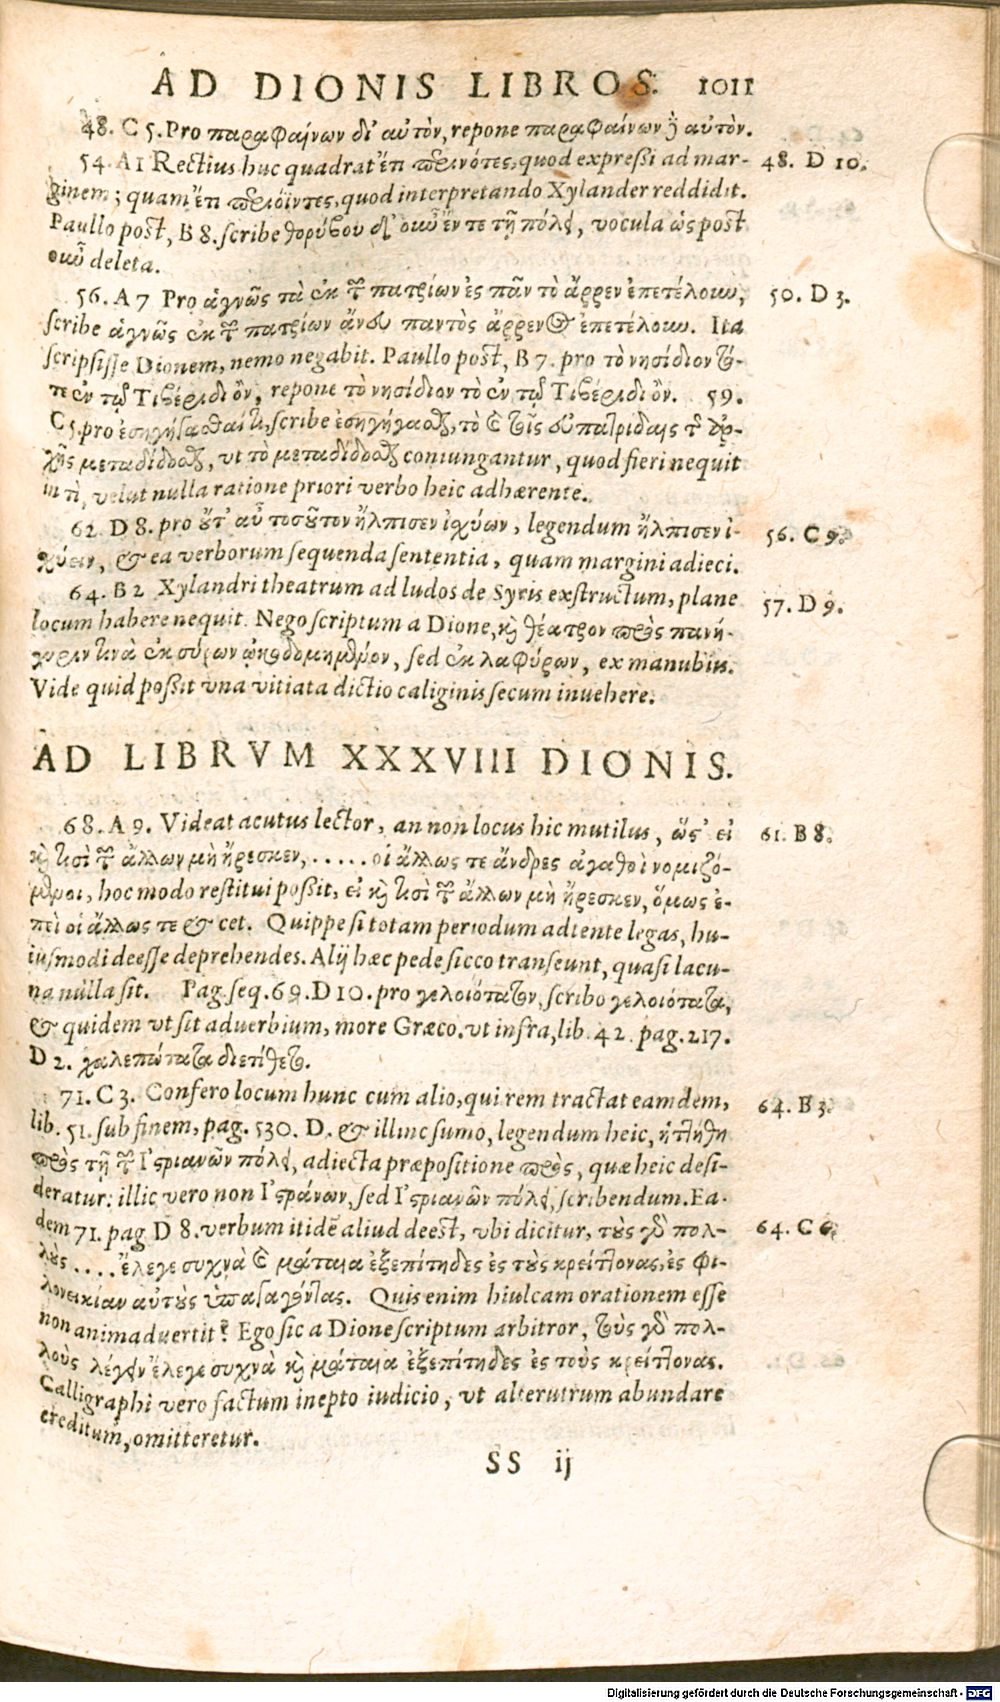 AD DIONIS LIBROS. 1011
48. C 5. Pro παραφαίνων δι' αὐτὸν, repone παραφαίνων ἢ αὐτὸν.
54. A 1 Rectius huc quadrat ἔτι περιόντες, quod expressi ad mar- 48. D 10.
ginem; quam ἔτι περιϊόντες, quod interpretando Xylander reddidit.
Paullo post, B 8. scribe θορύβου δ' οὖν ἔν τε τῇ πόλει, vocula ὡς post
οὖν deleta.
56. A 7 Pro ἁγνῶς τὰ ἐκ τῶν πατρίων ἐς πᾶν τὸ ἄρρεν ἐπετέλουν, 50. D 3.
scribe ἁγνῶς ἐκ τῶν πατρίων ἄνευ παντὸς ἄρρενος ἐπετέλουν. Ita
scripsisse Dionem, nemo negabit. Paullo post, B 7. pro τὸ νησίδιον
τε ἐν τῷ Τιβέριδι ὂν, repone τὸ νησίδιον τὸ ἐν τῷ Τιβέριδι ὂν. 59.
C 5. pro ἐσηγήσασθαί τι, scribe ἐσηγήσασθαι, τὸ καὶ τοῖς εὐπατρίδαις τῆς ἀρ-
χῆς μεταδίδοσθαι, vt τὸ μεταδίδοσθαι coniungantur, quod fieri nequit
in τὶ, velut nulla ratione priori verbo heic adhærente.
62. D 8. pro οὔτ' αὖ τοσοῦτον ἤλπισεν ἰσχύων, legendum ἤλπισεν ἰ- 56. C 9.
σχύειν, & ea verborum sequenda sententia, quam margini adieci.
64. B 2 Xylandri theatrum ad ludos de Syris exstructum, plane 57. D 9.
locum habere nequit. Nego scriptum a Dione, καὶ θέατρον πρὸς πανή-
γυριν τινὰ ἐκ σύρων ᾠκοδομημένον, sed ἐκ λαφύρων, ex manubiis.
Vide quid possit vna vitiata dictio caliginis secum inuehere.
AD LIBRVM XXXVIII DIONIS.
68. A 9. Videat acutus lector, an non locus hic mutilus, ὥς' εἰ 61. B 8.
καὶ τισὶ τῶν ἄλλων μὴ ἤρεσκεν, ..... οἱ ἄλλως τε ἄνδρες ἀγαθοὶ νομιζό-
μενοι, hoc modo restitui possit, εἰ καὶ τισὶ τῶν ἄλλων μὴ ἤρεσκεν, ὅμως ἐ-
πεὶ οἱ ἄλλως τε & cet. Quippe si totam periodum adtente legas, hu-
iusmodi deesse deprehendes. Alij hæc pede sicco transeunt, quasi lacu-
na nulla sit. Pag. seq. 69. D 10. pro γελοιότατον, scribo γελοιότατα,
& quidem vt sit aduerbium, more Græco. vt infra, lib. 42. pag. 217.
D 2. χαλεπώτατα διετίθετο.
71. C 3. Confero locum hunc cum alio, qui rem tractat eamdem, 64. B 3.
lib. 51. sub finem, pag. 530. D. & illinc sumo, legendum heic, ἡττήθη
πρὸς τῇ τῶν Ἰστριανῶν πόλει, adiecta præpositione πρὸς, quæ heic desi-
deratur: illic vero non Ἰστράνων, sed Ἰστριανῶν πόλει, scribendum. Ea-
dem 71. pag D 8. verbum itidē aliud deest, vbi dicitur, τοὺς γὰρ πολ- 64. C 6.
λοὺς .... ἔλεγε συχνὰ καὶ μάταια ἐξεπίτηδες ἐς τοὺς κρείττονας, ἐς φι-
λονεικίαν αὐτοὺς ὑπαγαγόντας. Quis enim hiulcam orationem esse
non animaduertit? Ego sic a Dione scriptum arbitror, τοὺς γὰρ πολ-
λοὺς λέγειν ἔλεγε συχνὰ καὶ μάταια ἐξεπίτηδες ἐς τοὺς κρείττονας.
Calligraphi vero factum inepto iudicio, vt alterutrum abundare
creditum, omitteretur.
SS ij
Digitalisierung gefördert durch die Deutsche Forschungsgemeinschaft - DFG